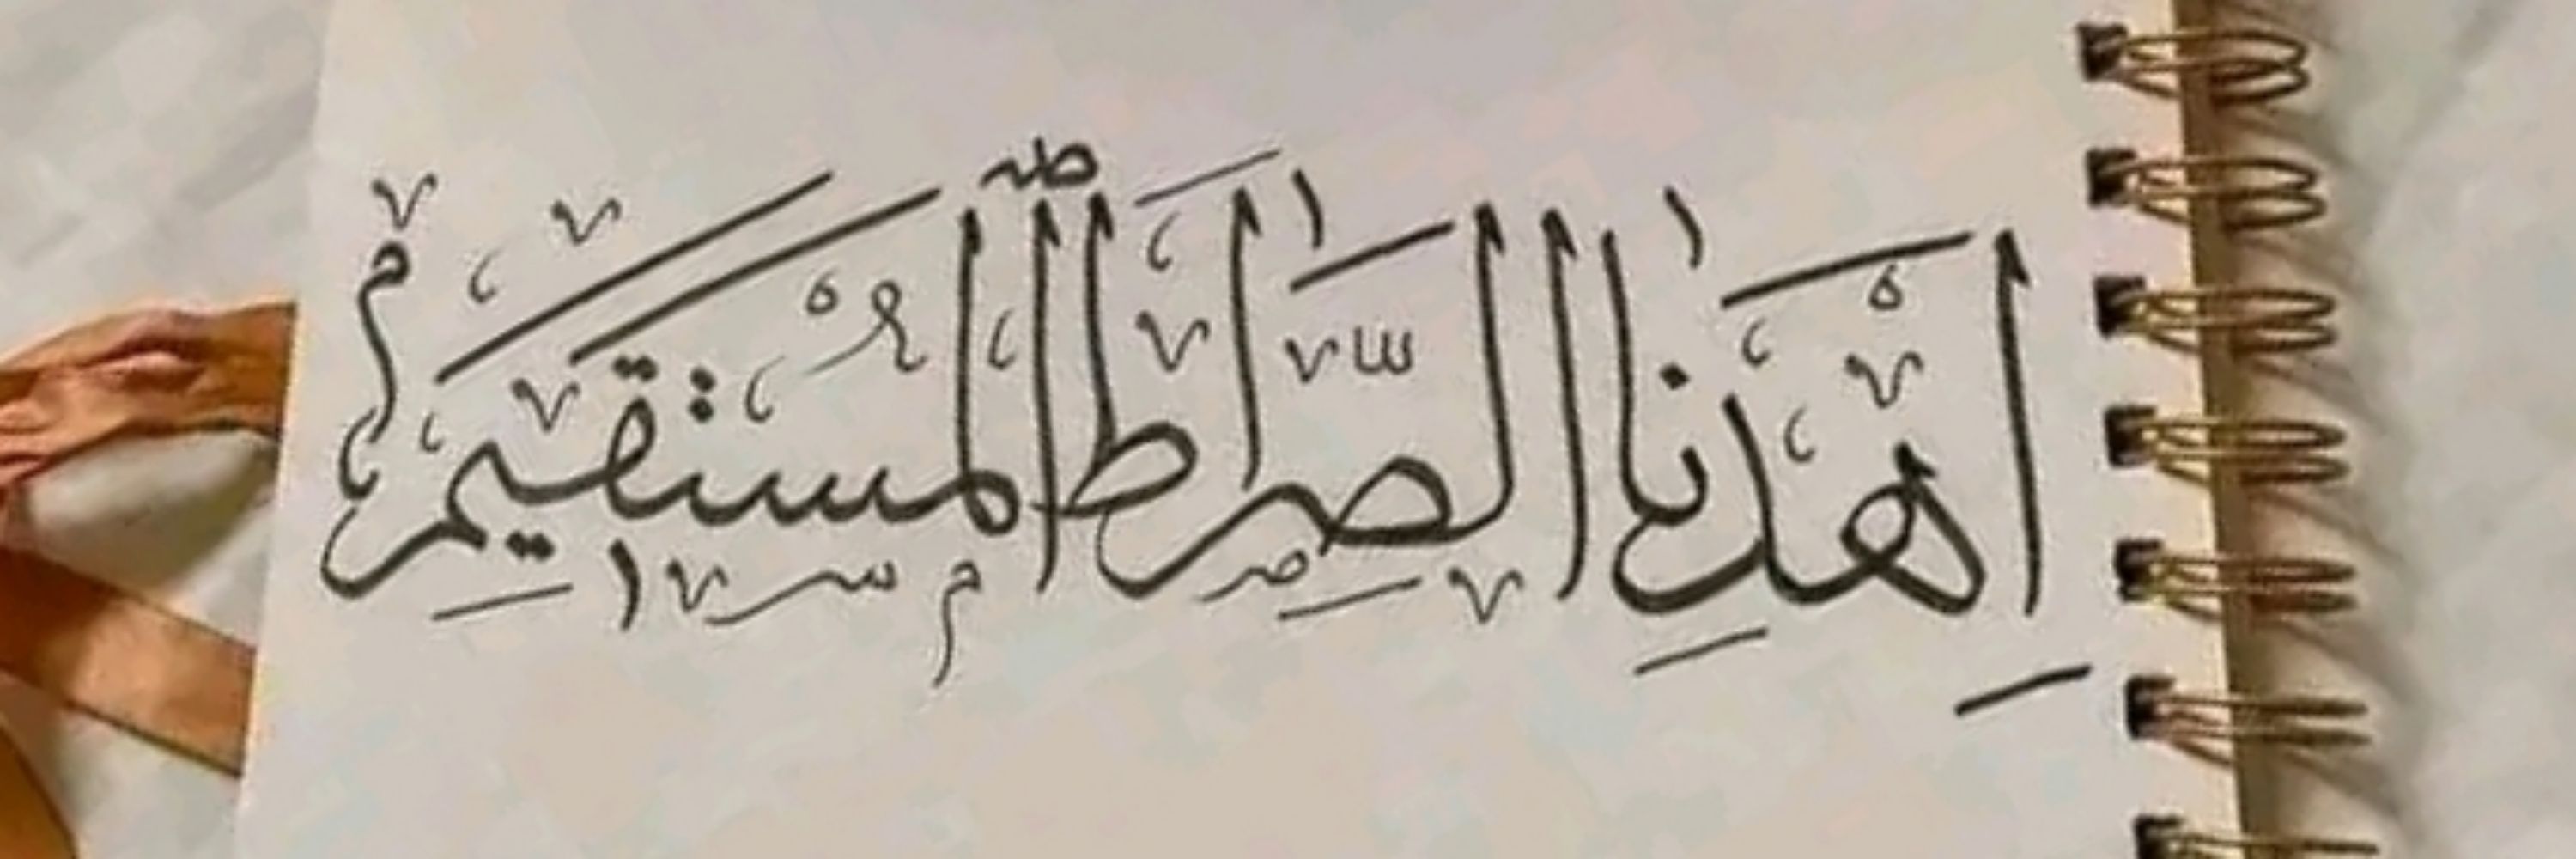 اِهْدِنَا الصِّرَاطَ الْمُسْتَقِيمَ